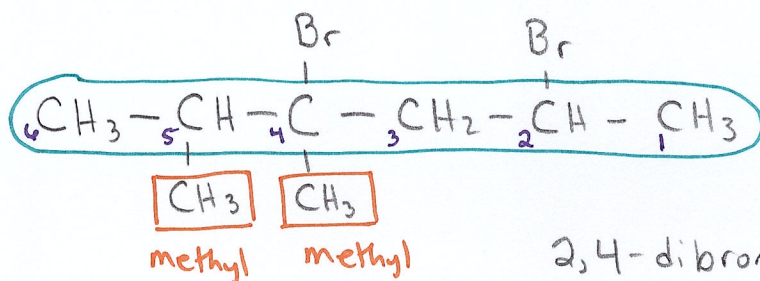 Br Br
6CH3 - 5CH - 4C - 3CH2 - 2CH - 1CH3
CH3 CH3
methyl methyl
2,4-dibro